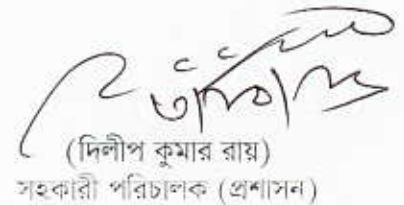 (দিলীপ কুমার রায়)
সহকারী পরিচালক (প্রশাসন)